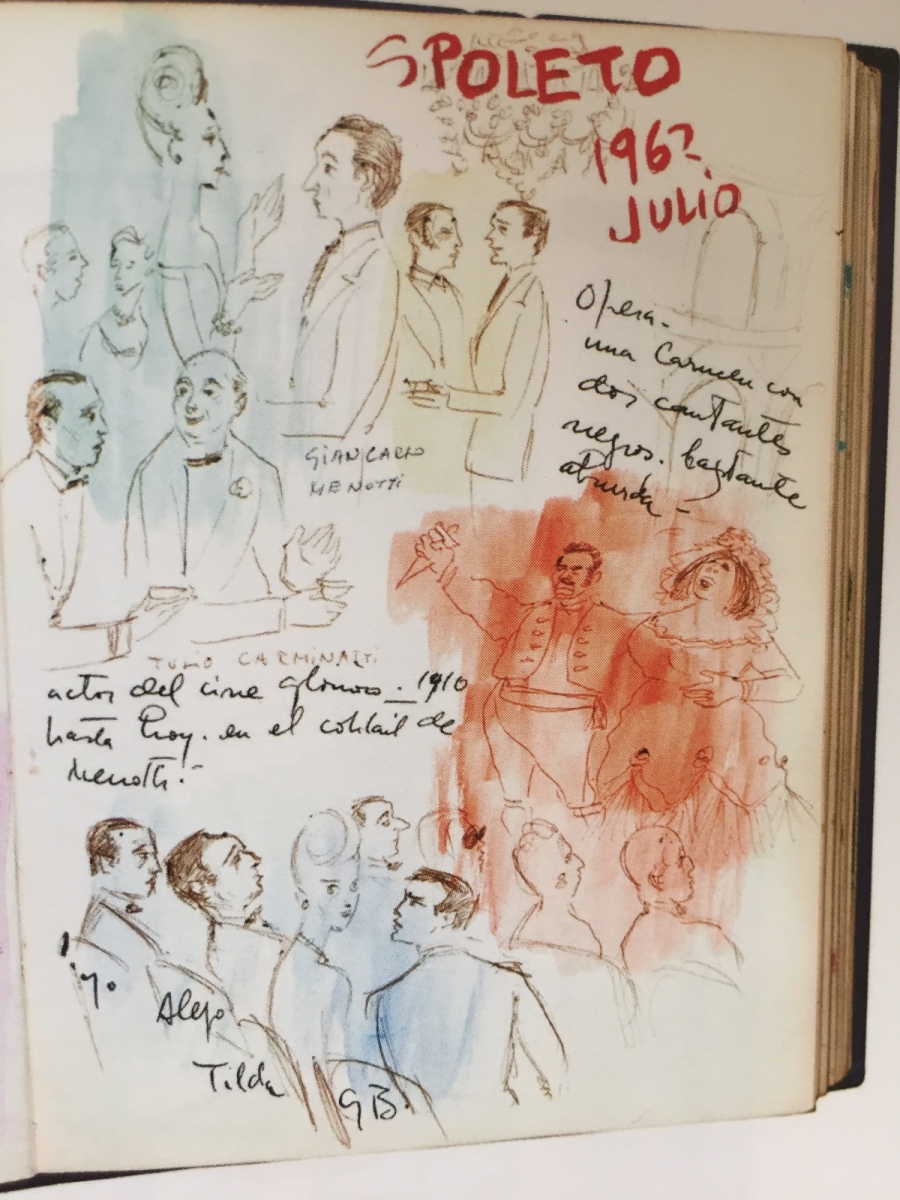 SPOLETO
196?
JULIO
Opera.
una Carmen con
dos cantantes
negros. bastante
absurda -
GIANCARLO
MENOTTI
TULIO CARMINATTI
actor del cine glorioso. 1910
hasta hoy. en el coktail de
Menotti.-
yo
Alejo
Tilda
GB.